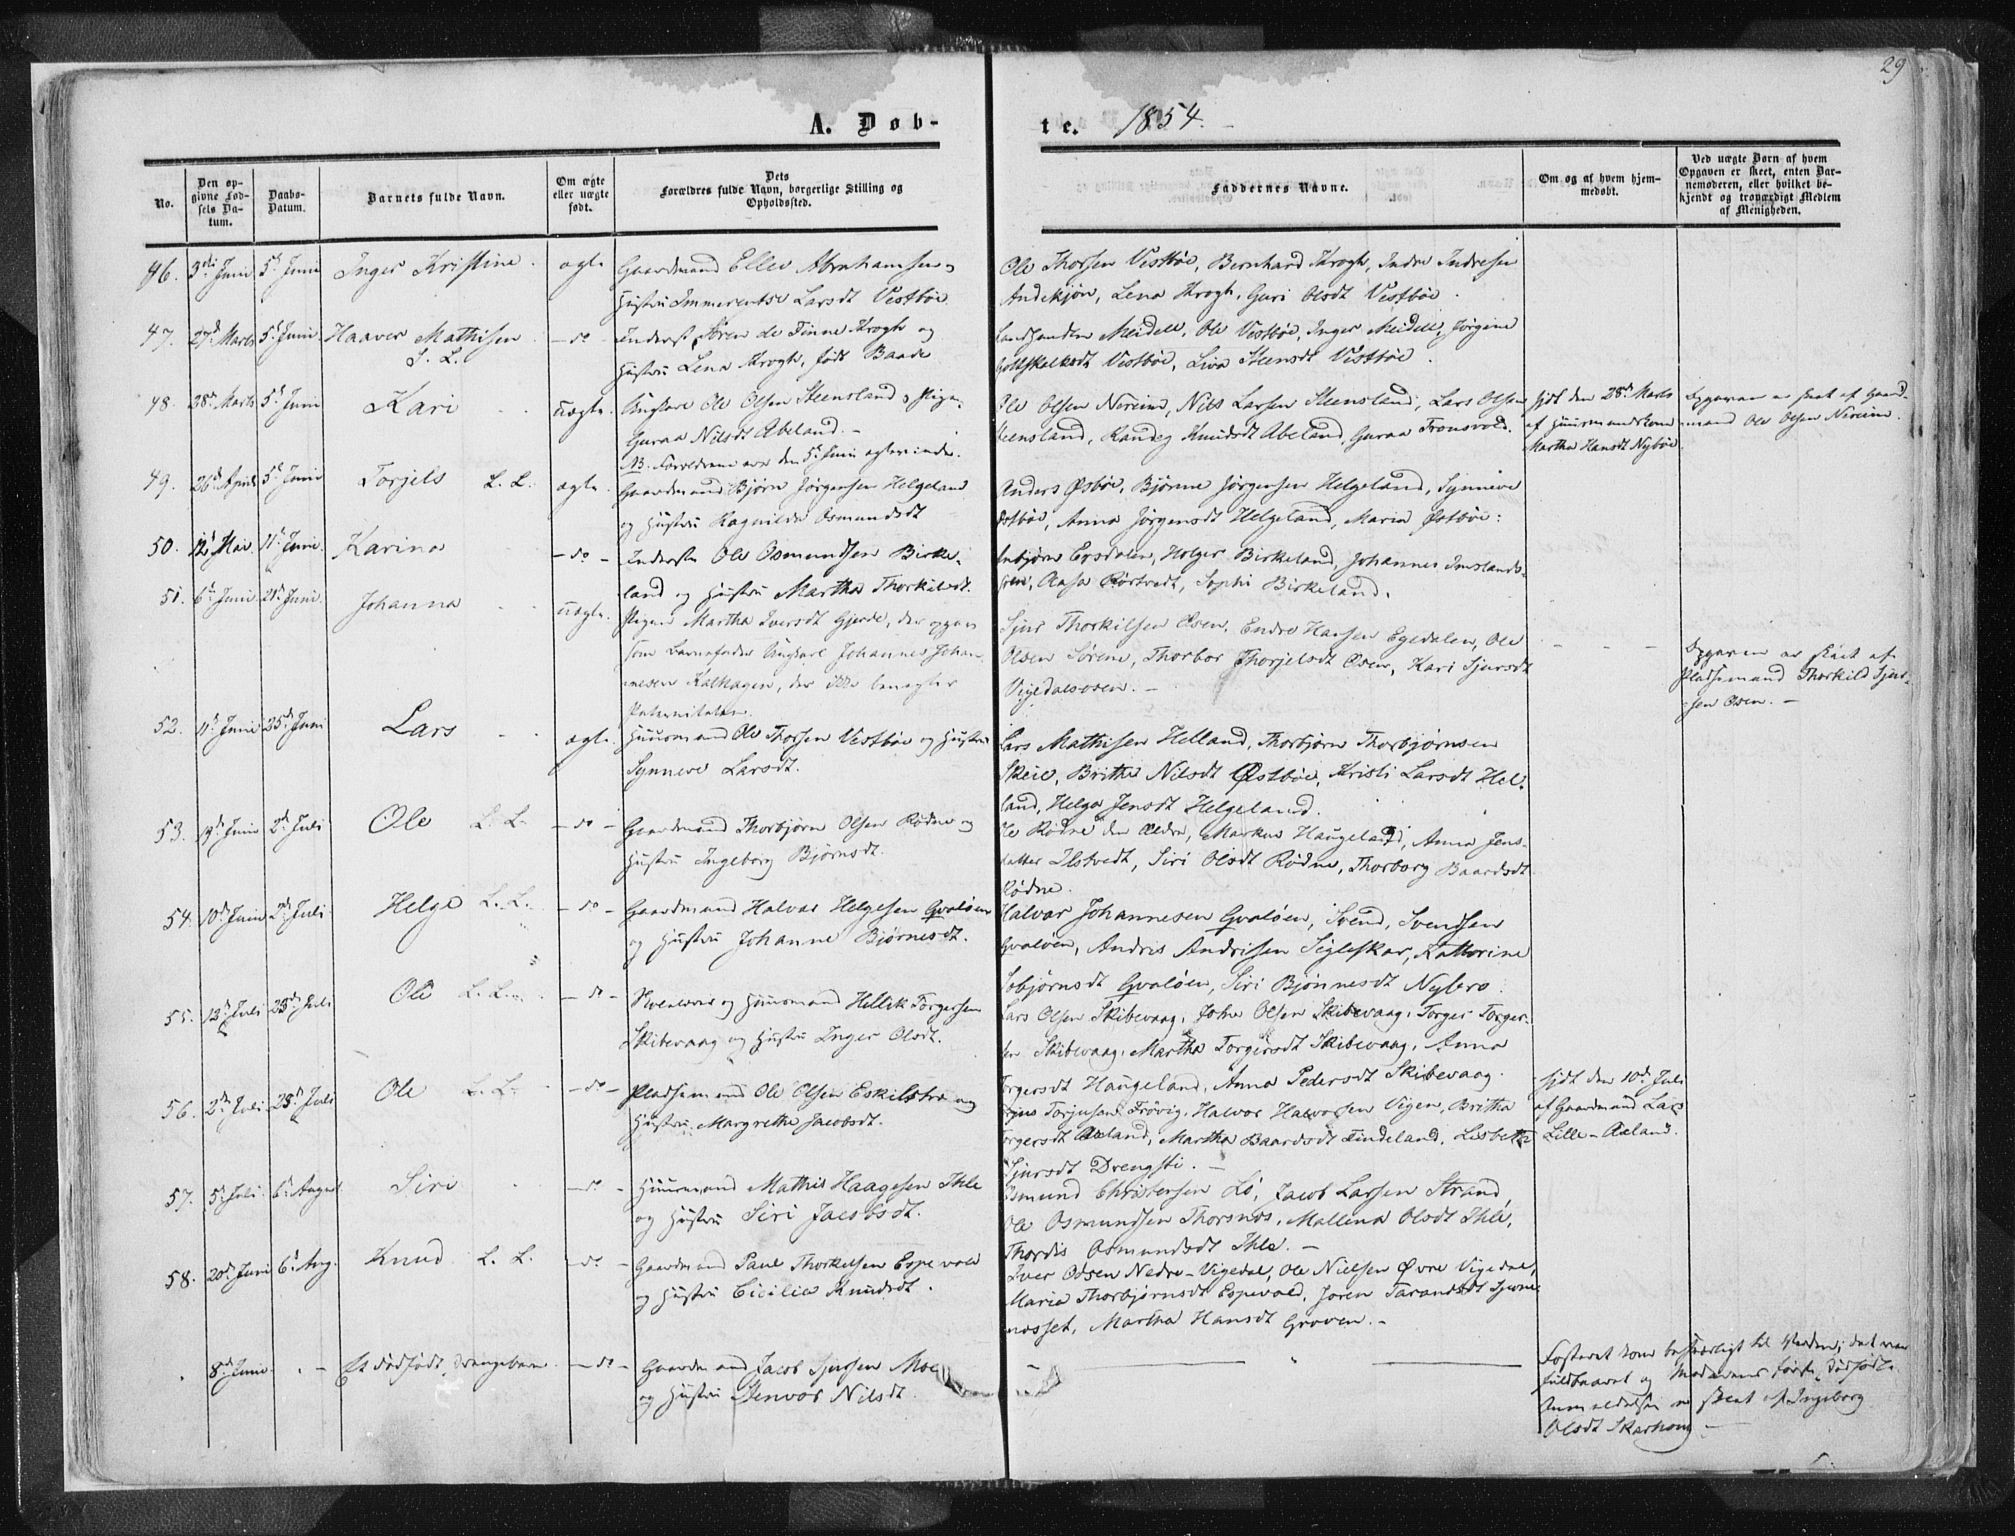 29
A. Døb-
te. 1854.
No.
Den op-
givne Fød-
sels Da-
tum.
Daabs-
Datum.
Barnets fulde Navn.
Om ægte
eller uægte
født.
Dets
Forældres fulde Navn, borgerlige Stilling og
Opholdssted.
Faddernes Navne.
Om og af hvem hjem-
medøbt.
Ved uægte Børn af hvem
Opgaven er skeet, enten Bar-
nemoderen, eller hvilket be-
kjendt og troværdigt Medlem
af Menigheden.
46. 3die Juni 5te Juni Inger Kristine ægte Gaardmand Ellev Abrahamsen
Hustru Larsdt Vestbøe
Ole Thorsen Vestbøe, Bernhard Krogh, Indre Indresen
Lena Krogh, Guri Olsdt Vestbøe.
47. 27de Marts 5te Juni Haaver Mathisen -do- Inderst Søren de Finne Krogh og
L. Hustru Lena Krogh, født Baade
Landhandler Meidell, Ole Vestbøe, Inger Meidell, Jørgine
Vestbøe, Steensdt Vestbøe.
48. 28de Marts 5te Juni Kari uægte Ungkarl Ole Olsen Steensland, Pige
Guraa Nilsdt Abeland.
NB. Forældrene ere den 5te Juni
Ole Olsen Nereim, Nils Larsen Steensland, Lars Olsen
Steensland, Randeg Knudsdt Abeland, Guraa Tronsvold.
Hjdt den 28de Marts
af Huusmandskone
Martha Hansdt Nybøe
Opgaven er skeet af Gaard-
mand Ole Olsen Nereim.
49. 26de April 5te Juni Torjils L. L. ægte Gaardmand Bjørn Jørgensen Helgeland
og Hustru Ragnilde Osmundsdt
Anders Østbøe, Bjørne Jørgensen Helgeland, Synneve
Østbøe, Anna Jørgensdt Helgeland, Maria Østbøe.
50. 12te Mai 11te Juni Karina -do- Inderste Ole Osmundsen Birke-
land og Hustru Martha Thorkilsdt.
Ersdalen, Holger Birkeland, Johannes Imslands-
Aasa Rørtvedt, Sophi Birkeland.
51. 6te Juni 21de Juni Johanna uægte Pigen Martha Iversdt Gjerde, der opgav
som Barnefader Ungkarl Johannes Johan-
nesen Kalhagen, der ikke benægter
Paterniteten.
Sjur Thorkilsen Osen, Endre Hansen Egedalen, Ole
Olsen Sørene, Thorbor Thorjelsdt Osen, Kari Sjursdt
Vigedalsosen.
Opgaven er skeet af
Pladsemand Thorkild Sjur-
sen Osen.
52. 11te Juni 25de Juni Lars ægte Huusmand Ole Thorsen Vestbøe og Hustru
Synneve Larsdt.
Lars Mathisen Helland, Thorbjørn Thorbjørnsen
Skeie, Britha Nilsdt Østbøe, Kristi Larsdt Hel-
land, Helga Jensdt Helgeland.
53. 19de Juni 2de Juli Ole L. L. -do- Gaardmand Thorbjørn Olsen Rødne og
Hustru Ingeborg Bjørnsdt.
Ole Rødne den Ældre, Markus Haugeland, Anna Jens-
datter Ilstvedt, Siri Olsdt Rødne, Thorborg Baardsdt
Rødne.
54. 10de Juni 2de Juli Helge L. L. -do- Gaardmand Halvor Helgesen Gvaløen
og Hustru Johanne Bjørnesdt.
Halvor Johannesen Gvaløen, Svend Svendsen
Gvaløen, Andris Andrisen Tigleskar, Kathrine
Gvaløen, Siri Bjønnesdt Nybro.
55. 12te Juli 23de Juli Ole L. L. -do- og Huusmand Hellik Torgersen
Skibevaag og Hustru Inger Olsdt.
Lars Olsen Skibevaag, John Olsen Skibevaag, Torger Torger-
sen Skibevaag, Martha Torgersdt Skibevaag, Anna
Torgersdt Haugeland, Anna Pedersdt Skibevaag.
56. 2de Juli 23de Juli Ole L. L. -do- Pladsemand Ole Olsen Eskilstræ og
Hustru Margrethe Jacobsdt.
Torjusen Frøvig, Halvor Halvorsen Vigen, Britha
Torgersdt Øxland, Martha Baardsdt Tindeland, Lisbeth
Sjursdt Drengsti.
Hjdt den 10de Juli
af Gaardmand Lars
Lille-Axland.
57. 5te Juli 6te August Siri -do- Huusmand Mathis Haagesen Ihle
og Hustru Siri Jacobsdt.
Osmund Christensen Lø, Jacob Larsen Strand,
Ole Osmundsen Thorsnos, Mallena Olsdt Ihle,
Thordis Osmundsdt Ihle.
58. 20de Juni 6te Aug. Knud L. L. -do- Gaardmand Paul Thorkelsen Espevold
og Hustru Cicilia Knudsdt.
Iver Odsen Nedre-Vigedal, Ole Nielsen Øvre Vigedal,
Maria Thorbjørnsdt Espevold, Joren
Martha Hansdt Groven.
8de Juni Et dødfødt Drengebarn -do- Gaardmand Jacob Sjursen Moe
og Hustru Jenvor Nilsdt.
Fosteret kom besværligt til Verden; det var
fuldbaaret og Moderens første dødfødte.
Anmeldelsen er skeet af Ingeborg
Olsdt